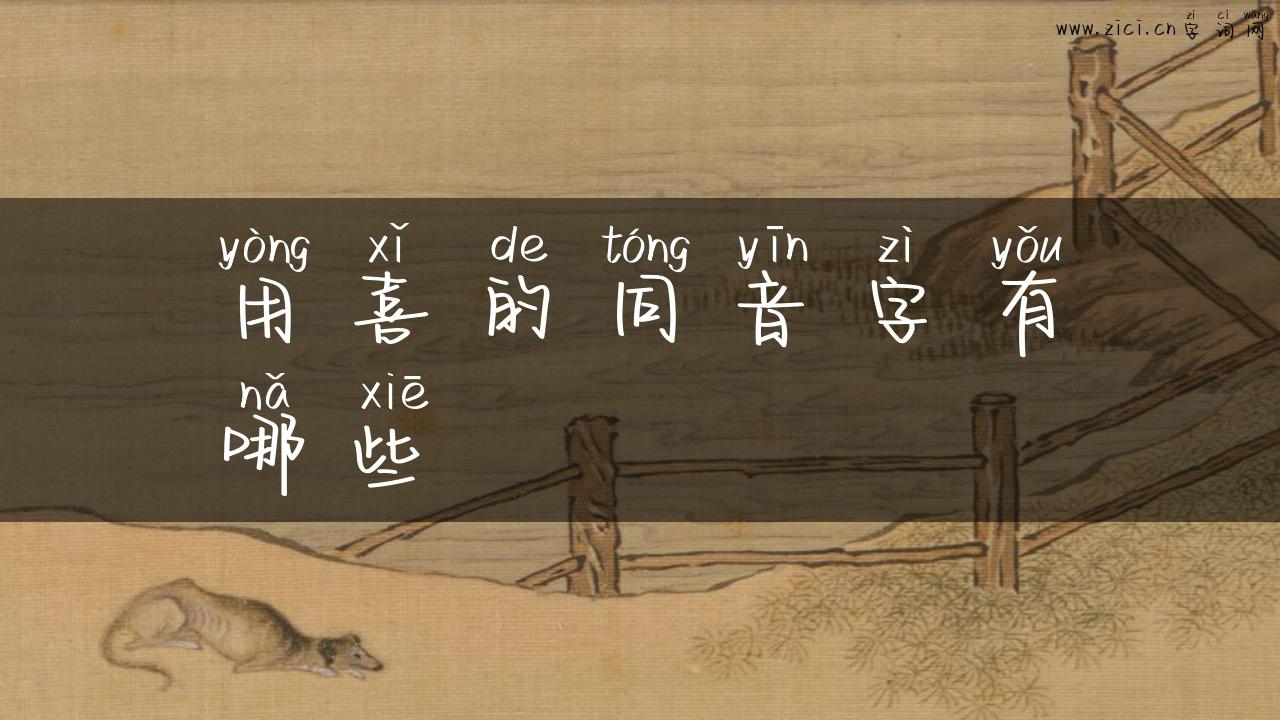 zì cí wǎng
www.zici.cn 字词网
yòng xǐ de tóng yīn zì yǒu
用喜的同音字有
nǎ xiē
哪些